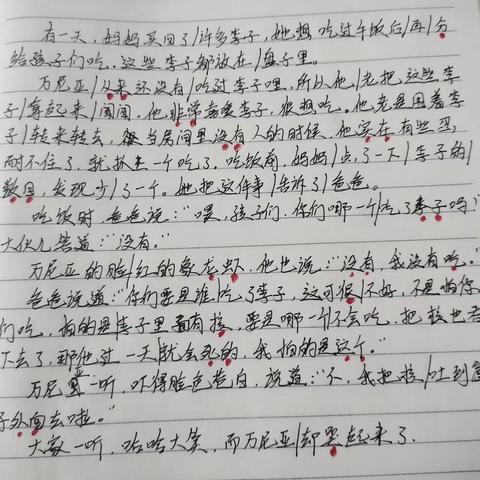 有一天，妈妈买回了/许多李子，她想吃过午饭后/再/分
给孩子们吃，这些李子都放在/盘子里。
万尼亚/从来还没有/吃过李子哩，所以他/老把这些李
子/拿起来/闻闻，他非常喜爱李子，很想吃。他老是围着李
子/转来转去，当房间里没有人的时候，他实在有些忍
耐不住了，就抓一个吃了。吃饭前，妈妈/点了一下/李子的/
数目，发现少/了一个。她把这件事/告诉了/爸爸。
吃饭时，爸爸说：“喂，孩子们，你们哪一个/吃了李子吗？”
大伙儿答道：“没有。”
万尼亚的脸/红的象龙虾，他也说：“没有，我没有吃。”
爸爸说道：“你们要是谁/吃了李子，这可很/不好，不是怕你
们吃，怕的是/李子里面有核，要是哪一个/不会吃，把核也吞
下去了，那他过一天/就会死的，我怕的是这个。”
万尼亚一听，吓得脸色苍白，说道：“不，我把核/吐到窗
子外面去啦。”
大家一听，哈哈大笑，而万尼亚/却哭起来了.